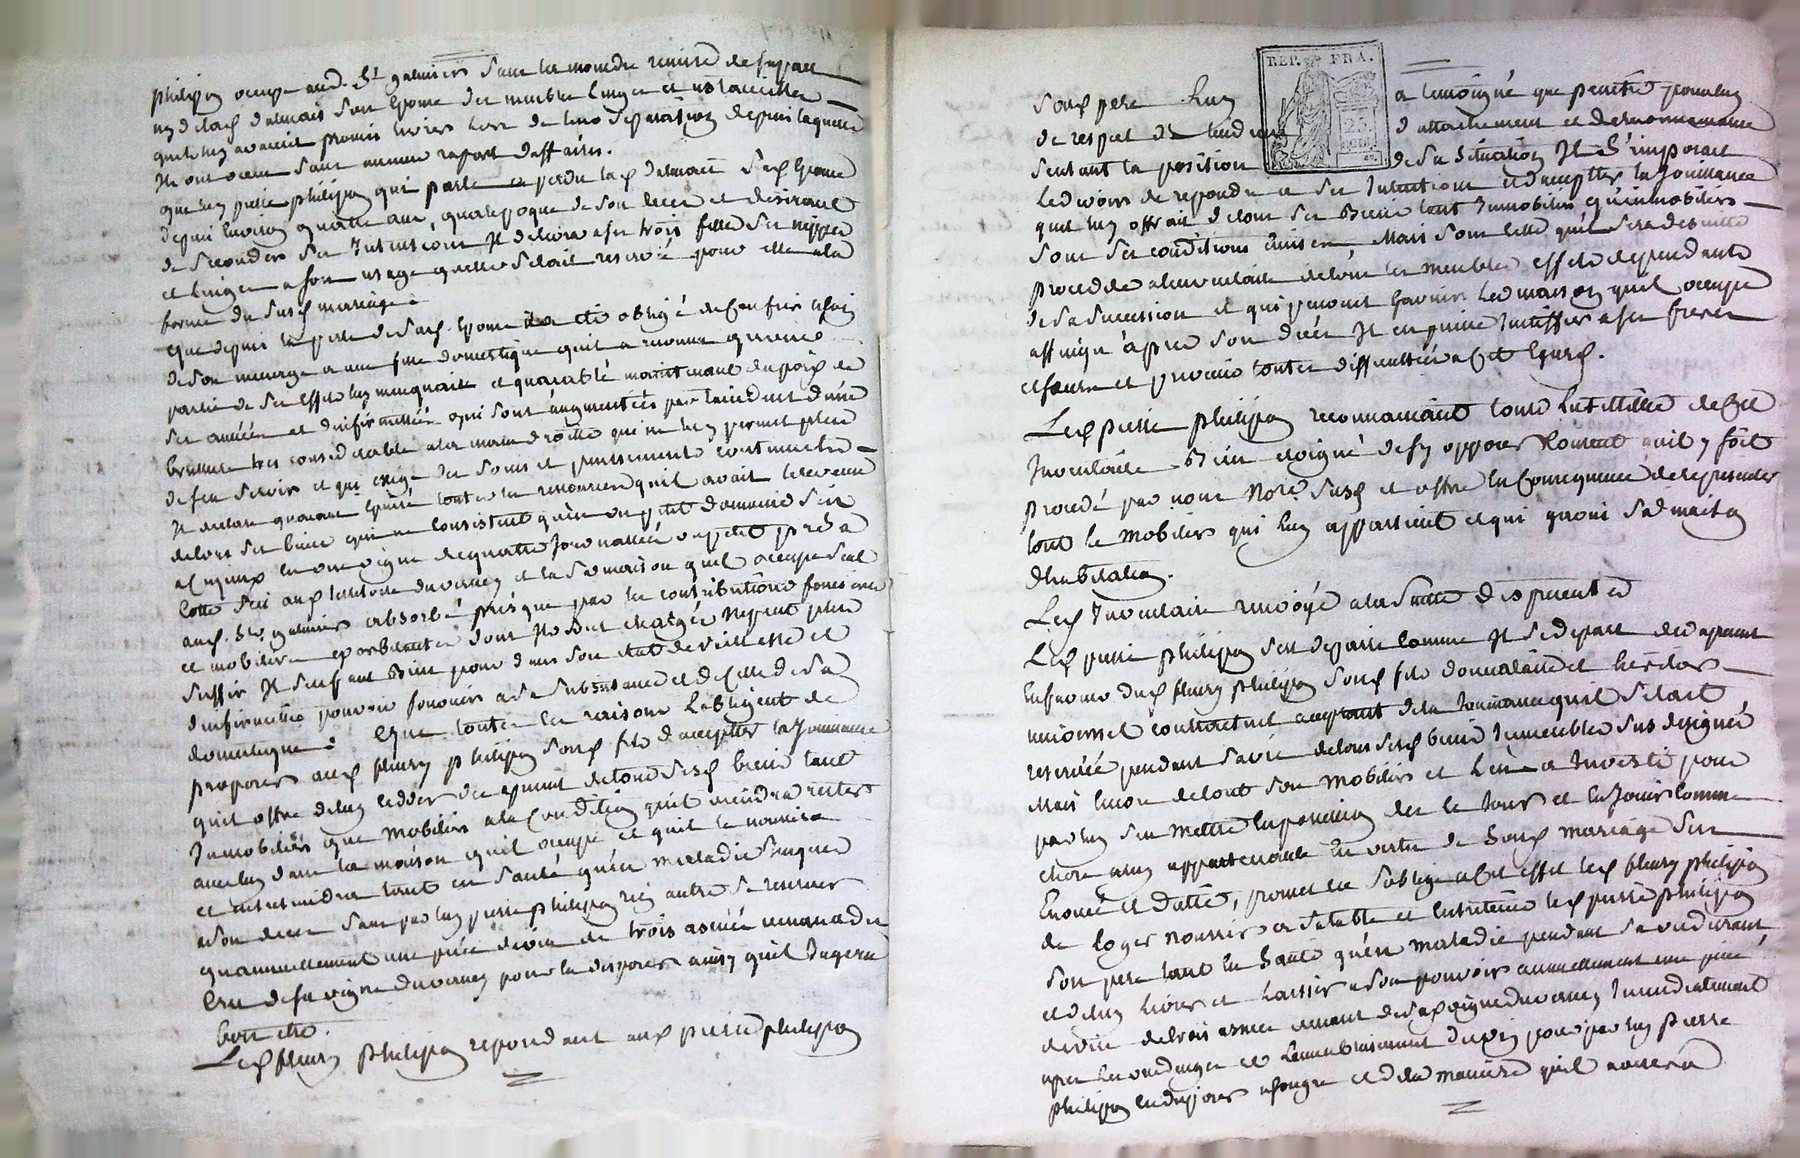 philipon occupe aud. St galmier sans la moindre remise de la part
ny de lad dalmais son epouse des meubles linges et
quils luy avaient promis lors de leur separation depuis laquelle
ils ont vecu sans aucun raport daffaires.
que luy pierre philipon qui parle a perdu lad dalmais sad epouse
depuis environ quatre ans, qua lepoque de son deces et desirant
de seconder ses intentions il delivra a ses trois filles les nippes
et linges a son usage quelle setait reservé pour elle a la
forme du susd mariage.
que depuis la perte de sad epouse il a été obligé de confier le soin
de son menage a une fille domestique quil a reconnu quune
partie de ses effets luy manquait et quaccablé maintenant du poix de
ses années et dinfirmités qui sont augmentées par laccident dune
brulure tres considerable a la main droite qui ne luy permet plus
de sen servir et qui exige des soins et pansements continuels
il a dautant epuisé toutes les ressources quil avait le revenu
de tous ses biens qui ne consistent quen un petit domaine sis
en une vigne de quatre journalées ou apeu près a
cotte sis aud territoire duverney et la sa maison quil occupe seul
aud. St galmier absorbé presque par les contributions foncieres
et mobiliere exorbitantes dont ils sont chargés ne peut plus
suffir il sen faut bien pour dans son etat de vieillesse et
dinfirmités pouvoir fournir a sa subsistance et de celle de sa
domestique. que toutes ces raisons lobligent de
proposer aud fleury philipon sond fils daccepter la jouissance
quil offre de luy cedder des apresent de tous sesd biens tant
immobiliers que mobiliers a la condition quil viendra rester
avec luy dans la maison quil occupe et quil le nourrira
et entretiendra tant en santé quen maladie jusques
a son deces sans par luy pierre philipon rien autre se reserver
quannuellement une piece de vin de trois asnées venant du
cru de sa vigne duverney pour la disposer ainsy quil jugera
bon etre.
Led fleury philipon repondant aud pierre philipon
REP. FRA.
25
sond pere luy a temoigné que penetré pour luy
de respect de tendresse dattachement et de reconnaissance
sentant la position de sa situation il simposait
le devoir de repondre a ses intentions et daccepter la jouissance
quil luy offrait de tous ses biens tant immobiliers quimmobiliers
sous ses conditions emises mais sous celle quil sera de suitte
procedé a linventaire de tous les meubles effets dependants
de sa succession et qui peuvent garnir led maison quil occupe
affin qu'apres son deces il en puisse justiffier a ses freres
et soeurs et prevenir toutes difficultés a cet egard.
Led pierre philipon reconnaissant toute lutillité de cet
inventaire bien eloigné de sy opposer consent quil y soit
procedé par nous Nore susd et offre en consequence de representer
tout le mobilier qui luy appartient et qui garni sad maison
dhabitation.
Led inventaire renvoyé a la suitte des presentes
Led pierre philipon sest departi comme il se depart des apresent
en faveur dud fleury philipon sond fils donnataire et heritier
universel contractuel acceptant de la jouissance quil setait
reservée pendant sa vie de tous sesd biens immeubles sus designés
mais encore de tout son mobilier et len a investi pour
par luy sen mettre en possession des le jour et en jouir comme
chose a luy appartenante en vertu de sond mariage sus
enoncé et datté, promet et soblige a cet effet led fleury philipon
de loger nourrir a sa table et entretenir led pierre philipon
son pere tant en santé quen maladie pendant sa vie durant
et de luy livrer et laisser a son pouvoir annuellement une piece
de vin de trois asnées venant de sa vigne duverney immediatement
apres les vendanges et du vin pour par luy pierre
philipon en disposer a son gre et de la maniere quil avisera